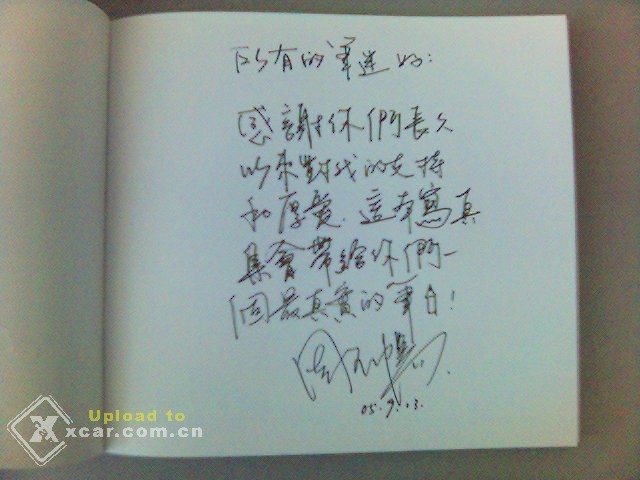 所有的筆迷好：
感謝你們長久
以來對我的支持
和厚愛．這本寫真
集會帶給你們一
個最真實的筆！
05.9.13.
Upload to
xcar.com.cn